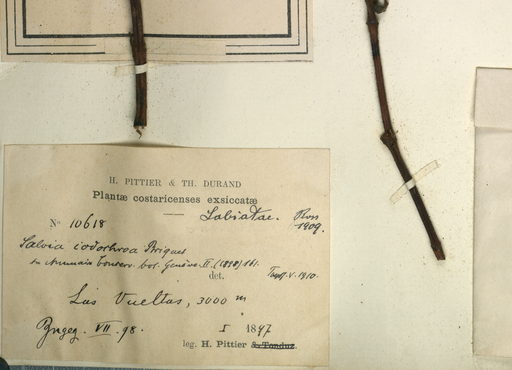 H. PITTIER & TH. DURAND
Plantæ costaricenses exsiccatæ
Labiatae.
1909.
N° 10618
Salvia iodochroa Briquet
in Annuaire Conserv. bot. Genève. II. (1898) 161.
det. V. 1910.
Las Vueltas, 3000 m
VII. 98. I 1897
leg. H. Pittier & Tonduz.